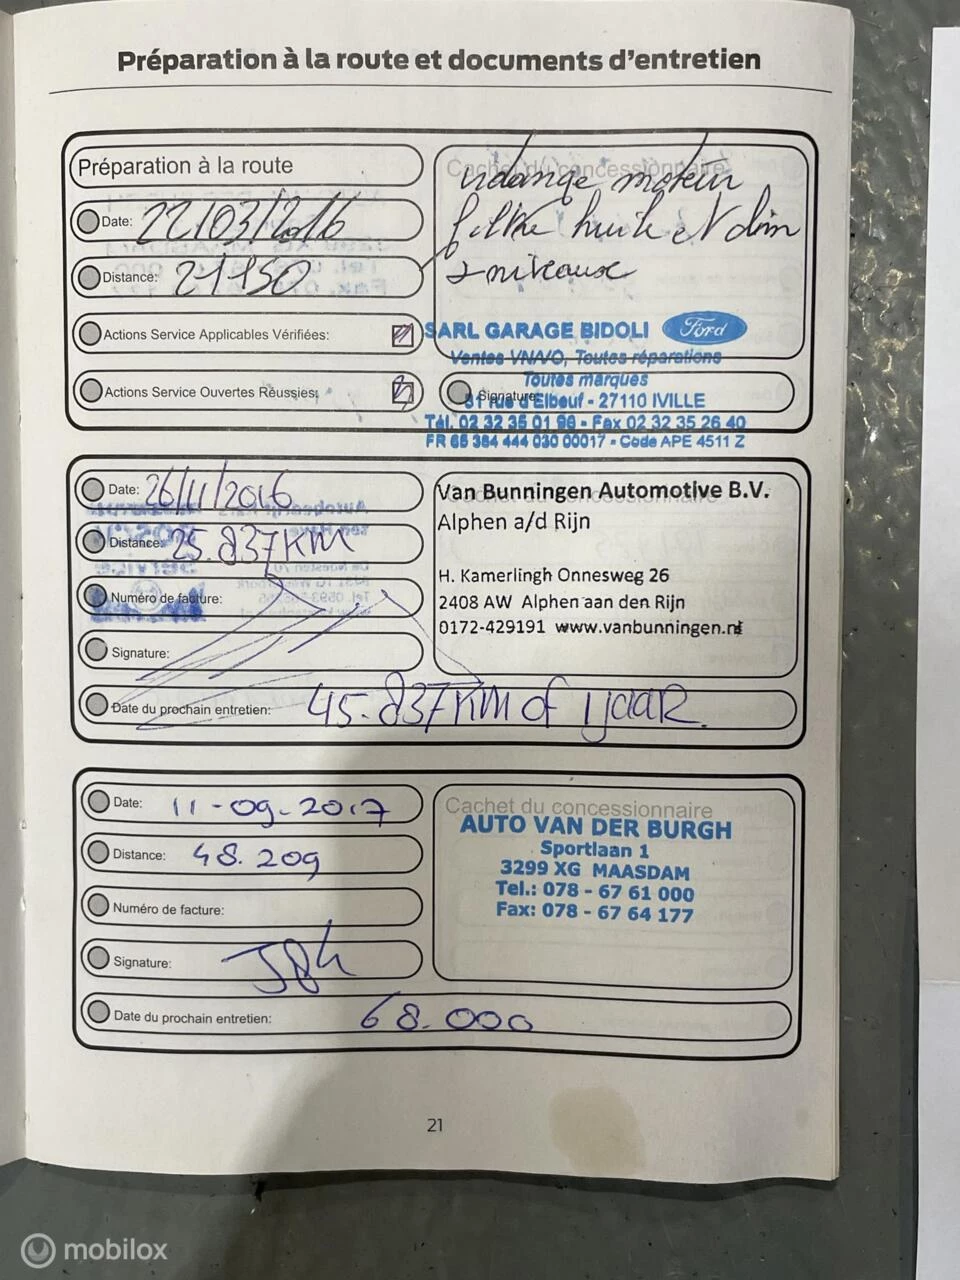 Préparation à la route et documents d'entretien
Préparation à la route
Date: 22/03/2016
Distance: 21150
Actions Service Applicables Vérifiées:
Actions Service Ouvertes Réussies:
Cachet du concessionnaire
vidange moteur
filtre huile et
+ niveaux
SARL GARAGE BIDOLI Ford
Ventes VN/VO, Toutes réparations
Toutes marques
Signature:
31 rue d'Elbeuf - 27110 IVILLE
Tél. 02 32 35 01 98 - Fax 02 32 35 26 40
FR 65 384 444 030 00017 - Code APE 4511 Z
Date: 26/11/2016
Distance: 25.837KM
Numéro de facture:
Signature:
Date du prochain entretien: 45.837KM of 1 jaar.
Van Bunningen Automotive B.V.
Alphen a/d Rijn
H. Kamerlingh Onnesweg 26
2408 AW Alphen aan den Rijn
0172-429191 www.vanbunningen.nl
Date: 11-09-2017
Distance: 48.209
Numéro de facture:
Signature:
Date du prochain entretien: 68.000
Cachet du concessionnaire
AUTO VAN DER BURGH
Sportlaan 1
3299 XG MAASDAM
Tel.: 078 - 67 61 000
Fax: 078 - 67 64 177
21
mobilox